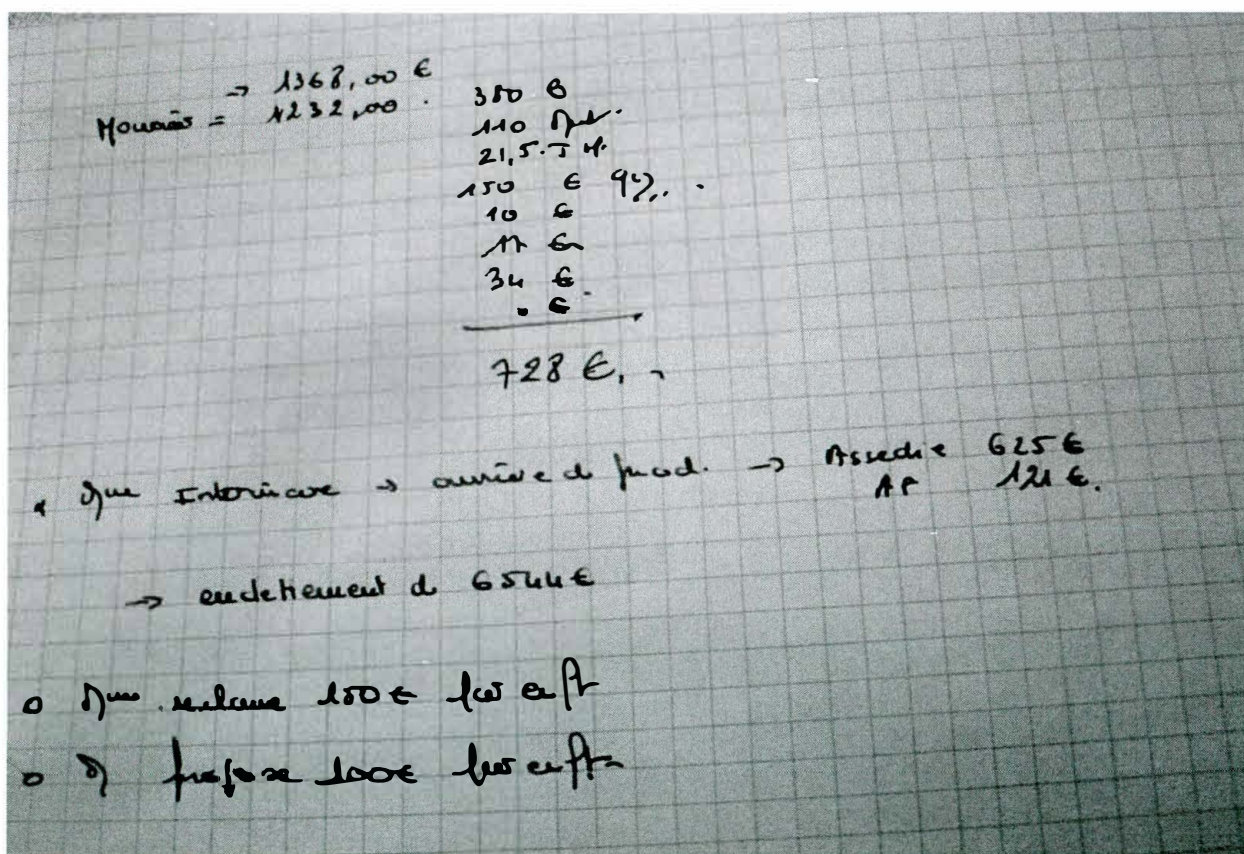 → 1368,00 €
= 1232,00
380 €
110
21,5. T H.
150 €
10 €
17 €
34 €
. €
728 €.
Interimaire → ouvrière de prod. → Assedic 625 €
AP 121 €.
→ endettement de 6544 €
o Mme reclame 150 € par enft
o M propose 100 € par enft